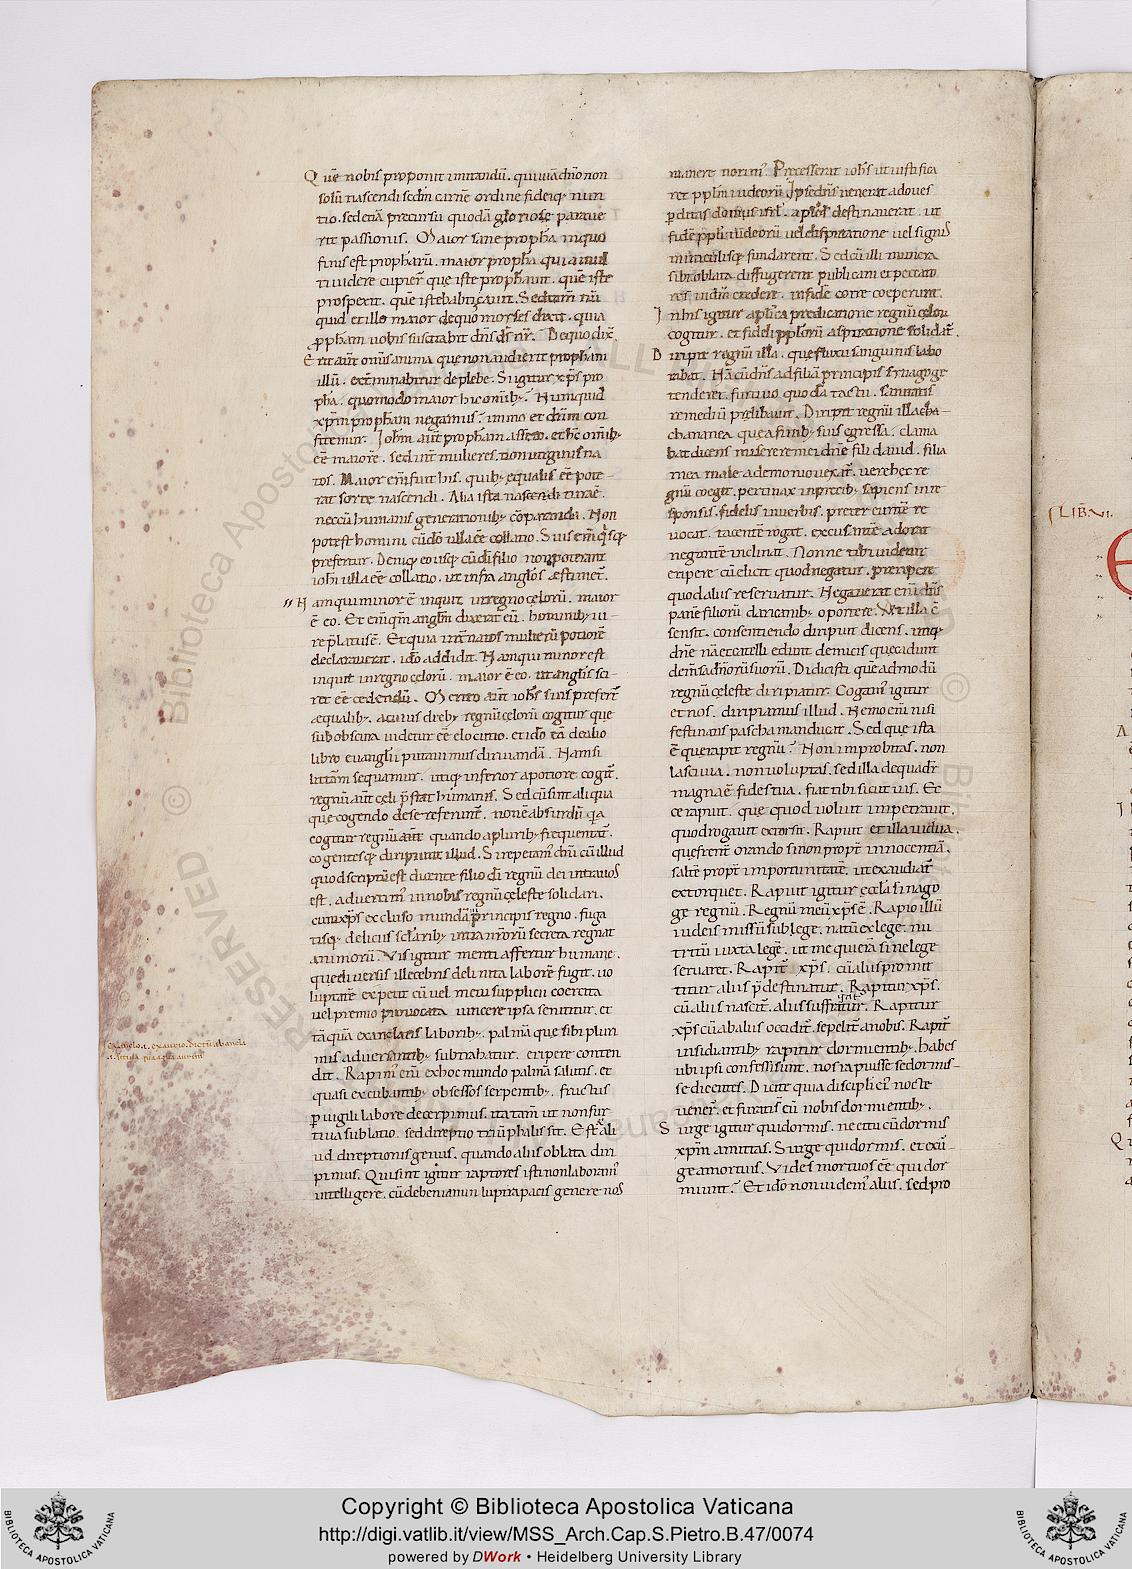 Quē nobis proponit imitandū. qui viā dn̄o non
solū nascendi scdm̄ carnē ordine fideiq; nun
tio. sed etiā precursu quodā gloriose parave
rit passionis. Maior sane propħa in quo
finis est propħarū. maior propħa quia mul
ti videre cupier̄ quē iste propħavit. quē iste
prospexit. quē iste babtizavit. Sed tam̄ nū
quid et illo maior de quo moyses dixit. quia
p̱pħam vobis suscitabit dn̄s ds̄ nr̄. De quo dix̄.
Erit aūt omīs anima quę non audierit propħam
illū. exterminabitur de plebe. Si igitur xp̄s pro
pħa. quomodo maior hic omīb;? Nunquid
xp̄m propħam negamus? immo et dn̄m con
fitemur. Joħm aūt propħam assero. et hc̄ omīb;
eē maiorē. sed int̄ mulieres. non virginis na
tos. Maior em̄ fuit his. quib; equalis eē pote
rat sorte nascendi. Alia ista nascendi
nec cū humanis generationib; cōparanda. Non
potest homini cū dō ulla eē collatio. Suis em̄ qisq;
prefertur. Deniq; eousq; cū di filio non poterant
ioħi ulla eē collatio. ut infra anglos ęstimet̄.
Nam qui minor ē inquit in regno cęlorū. maior
ē eo. Et em̄ qm̄ anglm̄ dixerat eū. hominib;
re platus ē. Et quia int̄ natos mulierū potiorē
declaraverat. idō addidit. Nam qui minor est
inquit in regno cęlorū. maior ē eo. ut anglis sci
ret eē cedendū. Merito aūt ioħs suis prefert̄
ęqualib;. a cuius dieb; regnū cęlorū cogitur quę
sub obscura videtur eē elocutio. et idō eā de alio
libro evanglii putamus dirivandā. Nam si
litt̄am sequamur. utiq; inferior a potiore cogit̄.
regnū aūt cęli p̄stat humanis. Sed cū sint aliqua
quę cogendo deseferunt̄. non ē absurdū qa
cogitur regnū aūt quando a plurib; frequentat̄.
cogentesq; diripiunt illud. Si repetam̄ dn̄i cū illud
quod scriptū est dicente filio di regnū dei intra vos
est. advertim̄ in nobis regnū cęleste solidari.
cum xp̄s excluso mundani principis regno. fuga
tisq; deliciis sęcularib; intra nr̄orū secreta regnat
animorū. Vis igitur menti affertur humanę.
quę diversis illecebris delinita laborē fugit. vo
luptatē expetit cū vel metu supplicii coercita
vel premio provocata vincere ipsa senititur. et
tāquā exanclatis laborib;. palmā quę sibi plurı
mis adversantib; subtrahatur. eripere conten
dit. Rapim̄ em̄ ex hoc mundo palmā salutis. et
quasi excubantib; obsessos serpentib;. fructus
p̱vigili labore decerpimus. ita tam̄ ut non fur
tiva sublatio. sed direptio triūphalis sit. Est et ali
ud direptionis genus. quando aliis oblata diri
pimus. Qui sint igitur raptores isti non laboram̄
intelligere. cū debeniamin lupi rapacis genere nos
exanclo.a. exaurio. dictū ab ancla
manere norim̄. Precesserat ioħs ut iustifica
ret pplm̄ iudeorū. Ipse dn̄s venerat ad oves
p̱ditas domus isrl̄. aplos destinaverat. ut
fidē ppli iudeorū vel disputatione vel signis
miraculisq; fundarent. Sed cū illi munera
sibi oblata diffugerent publicani et peccato
res in dm̄ credere. in fidē coire cœperunt.
In his igitur aplica predicatione regnū cęlor̄
cogitur. et fideli pplorū aspiratione solidat̄.
Diripit regnū illa. quę fluxu sanguinis labo
rabat. Nā cū dn̄s ad filiā principis synagogę
tenderet. furtivo quodā tactu. sanitatis
remediū prelibavit. Diripit regnū illa cha
chananea quę a finib; suis egressa. clama
bat dicens miserere mei dn̄e fili david. filia
mea male a demonio vexat̄. vere hęc re
gnū coegit. pertinax in precib; sapiens in re
sponsis. fidelis in verbis. pretereuntē re
vocat. tacentē rogat. excusantē adorat
negantē inclinat. Nonne tibi videtur
eripere cū elicit quod negatur. preripere
quod aliis reservatur. Negaverat em̄ dn̄s
panē filiorū dari canib; oportere. Ut illa ē
sensit. consentiendo diripuit dicens. utiq;
dn̄e nā et catelli edunt de micis quę cadunt
de m̄sa dn̄orū suorū. Didicisti quē admodū
regnū cęleste diripiatur. Cogam̄ igitur
et nos. diripiamus illud. Nemo em̄ nisi
festinans pascha manducat. Sed quę ista
ē quę rapit regnū? Non improbitas. non
lascivia. non voluptas. sed illa de qua dr̄
magna ē fides tua. fiat tibi sicut vis. Ec
ce rapuit. quę quod voluit impetravit.
quod rogavit extorsit. Rapuit et illa vidua.
quę freq̄nt̄ orando si non propt̄ innocentiā.
saltē propt̄ importunitatē. ut exaudiat̄
extorquet. Rapuit igitur ęccla synago
gę regnū. Regnū meū xp̄s ē. Rapio illū
iudeis missū sub lege. natū ex lege. nu
tritū iuxta legē. ut me qui erā sine lege
servaret. Rapit̄ xp̄s. cū aliis promit
titur aliis p̄destinatur. Rapitur xp̄s.
cū aliis nascit̄. aliis suffragatur. Rapitur
xp̄s cū ab aliis occidit̄. sepelit̄ a nobis. Rapit̄
insidiantib; rapitur dormientib; habes
ubi ipsi confessi sunt. nos rapuisse se dormis
se dicentes. Dicite quia discipli ei' nocte
vener̄. et furati s̄ eū nobis dormientib;.
Surge igitur qui dormis. ne et tu cū dormis
xp̄m amittas. Surge qui dormis. et exur
ge a mortuis. Vides mortuos eē qui dor
miunt? Et idō non videm̄ alius. sed pro
LIB. VI.
Copyright © Biblioteca Apostolica Vaticana
http://digi.vatlib.it/view/MSS_Arch.Cap.S.Pietro.B.47/0074
powered by DWork • Heidelberg University Library